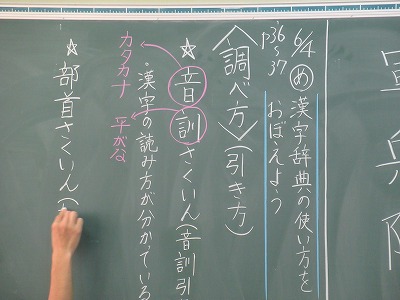 6/4
p36~37
め 漢字辞典の使い方を
おぼえよう
〈調べ方〉(引き方)
☆音訓さくいん(音訓引
カタカナ
平がな
・漢字の読み方が分かっている
☆部首さくいん(